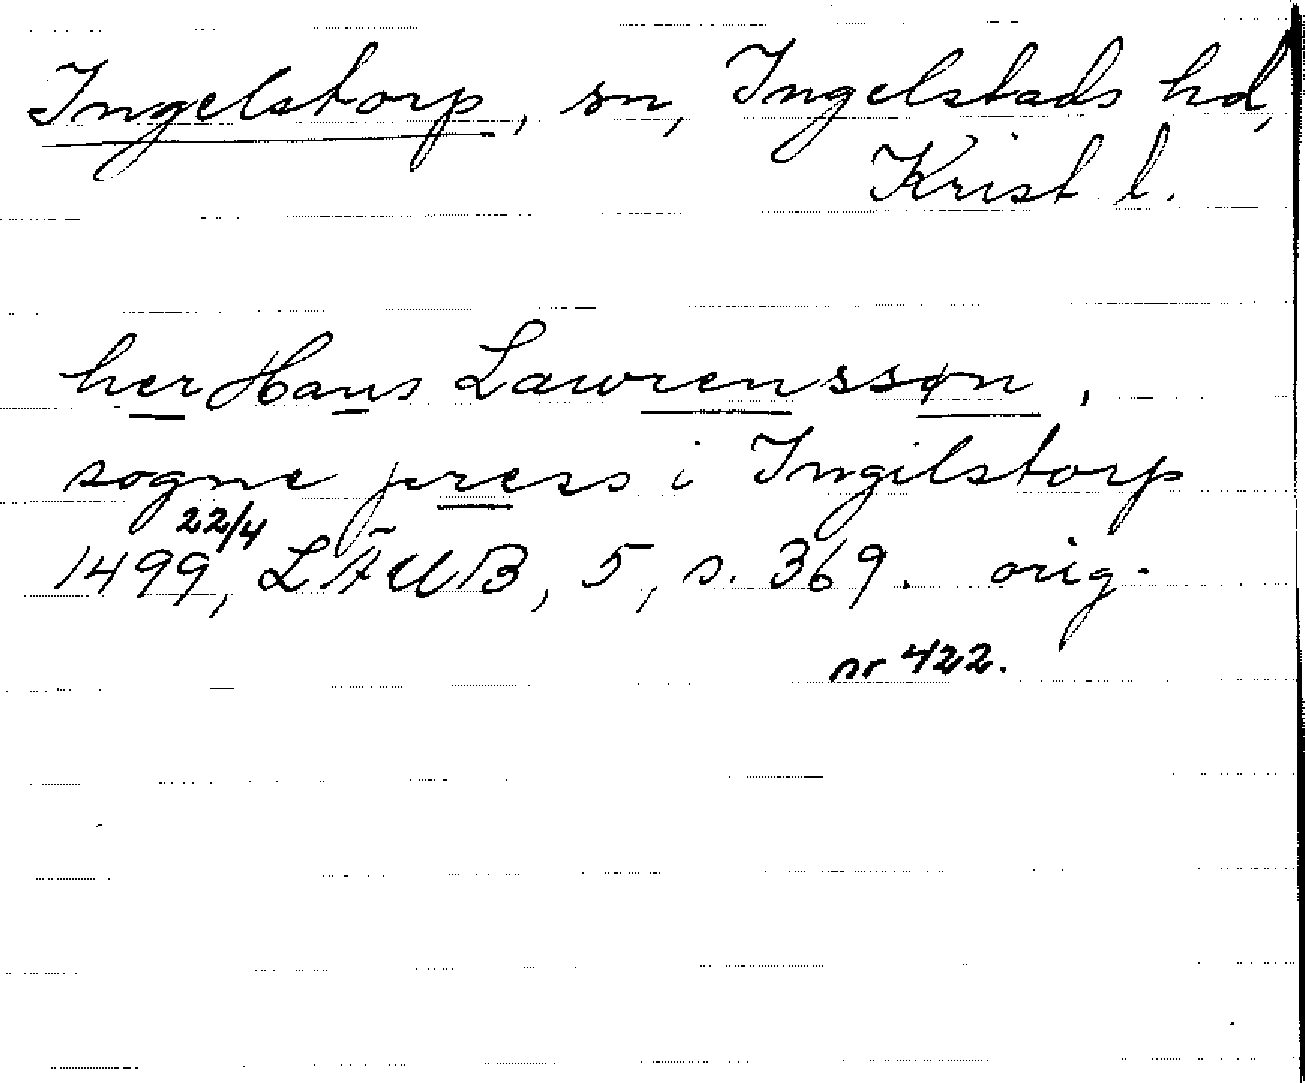 Ingelstorp, sn, Ingelstads hd,
Krist l.
her Hans Lawrenssøn,
sogne press i Ingilstorp
1499 22/4, LÄUB, 5, s. 369. orig.
nr 422.